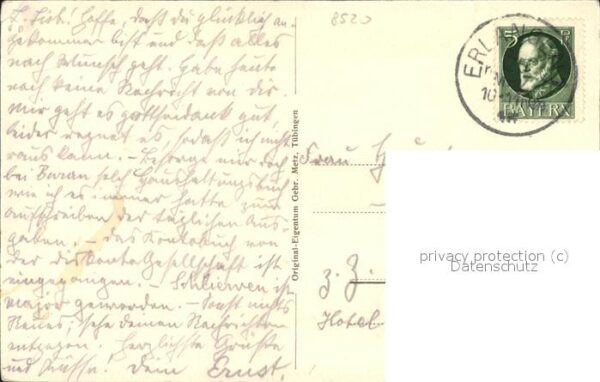 L. Lisb! Hoffe, daß du glücklich an-
gekommen bist und daß alles
nach Wunsch geht. Habe heute
noch keine Nachricht von dir.
Mir geht es gottseidank gut,
leider regnet es, sodaß ich nicht
raus kann. – Besorge mir doch
bei Baran solch Haushaltungsbuch
wie ich es immer hatte zum
Aufschreiben der täglichen Aus-
gaben. – Das Kontobuch von
der Diskonto Gesellschaft ist
eingegangen. – Schlieuen ist
Major geworden. – Sonst nichts
Neues; sehe deinen Nachrichten
entgegen. Herzlichste Grüße
und Küsse. Dein Ernst.
8520
Original-Eigentum Gebr. Metz, Tübingen
ERL
5 Pf
BAYERN
Frau
z. Z.
Hotel
privacy protection (c)
Datenschutz